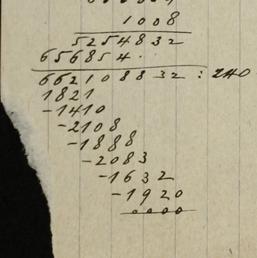 1008
5254832
656854.
662108832 : 240
1821
-1410
-2108
-1888
-2083
-1632
-1920
0000